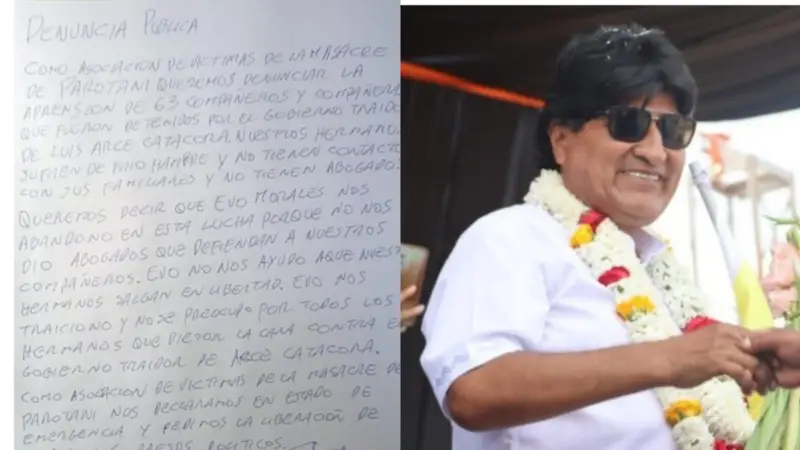 DENUNCIA PUBLICA
COMO ASOCIACION DE VICTIMAS DE LA MASACRE
DE PAROTANI QUEREMOS DENUNCIAR LA
APRENSION DE 63 COMPAÑEROS Y COMPAÑERA
QUE FUERON DETENIDOS POR EL GOBIERNO TRAIDO
DE LUIS ARCE CATACORA. NUESTROS HERMANO
SUFREN DE FRIO HAMBRE Y NO TIENEN CONTACTO
CON SUS FAMILIARES Y NO TIENEN ABOGADOS
QUEREMOS DECIR QUE EVO MORALES NOS
ABANDONO EN ESTA LUCHA PORQUE NO NOS
DIO ABOGADOS QUE DEFIENDAN A NUESTROS
COMPAÑEROS. EVO NO NOS AYUDO A QUE NUEST
HERMANOS SALGAN EN LIBERTAD. EVO NOS
TRAICIONO Y NO SE PREOCUPO POR TODOS LOS
HERMANOS QUE DIERON LA CARA CONTRA E
GOBIERNO TRAIDOR DE ARCE CATACORA.
COMO ASOCIACION DE VICTIMAS DE LA MASACRE DE
PAROTANI NOS DECLARAMOS EN ESTADO DE
EMERGENCIA Y PEDIMOS LA LIBERACIÓN DE
PRESOS POLITICOS.